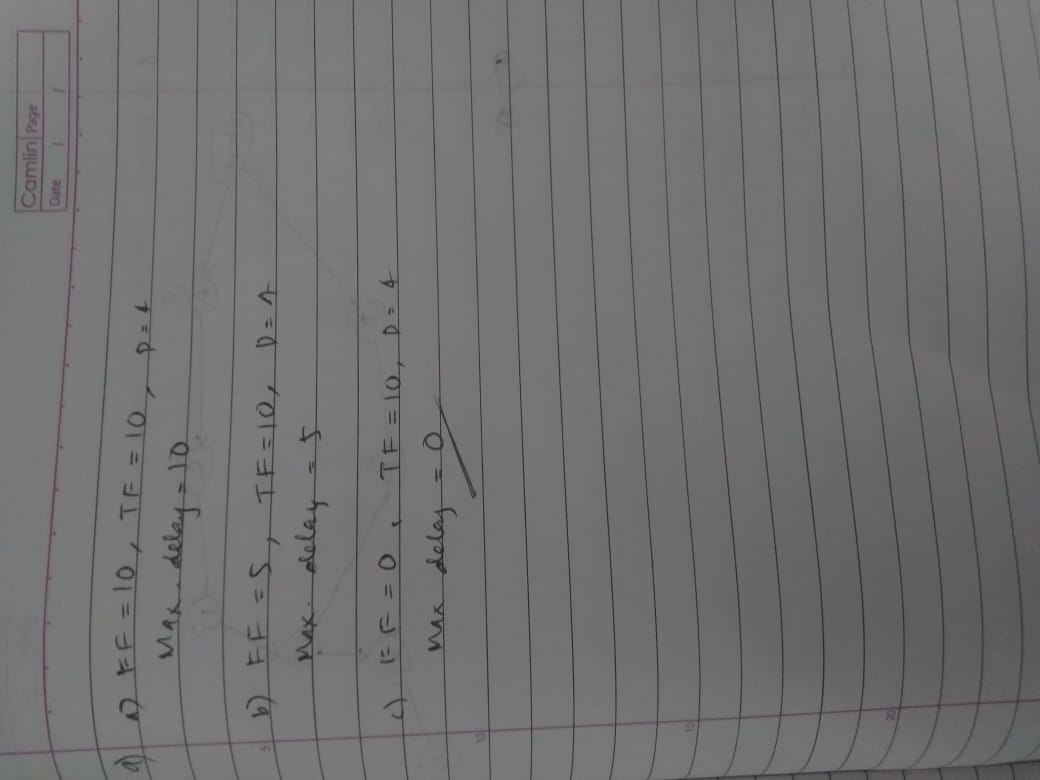 Camlin Page
Date / /
d) a) FF = 10, TF = 10, D = 4
Max. delay = 10
b) FF = 5, TF = 10, D = 4
Max. delay = 5
c) FF = 0, TF = 10, D = 4
Max delay = 0
10
15
20